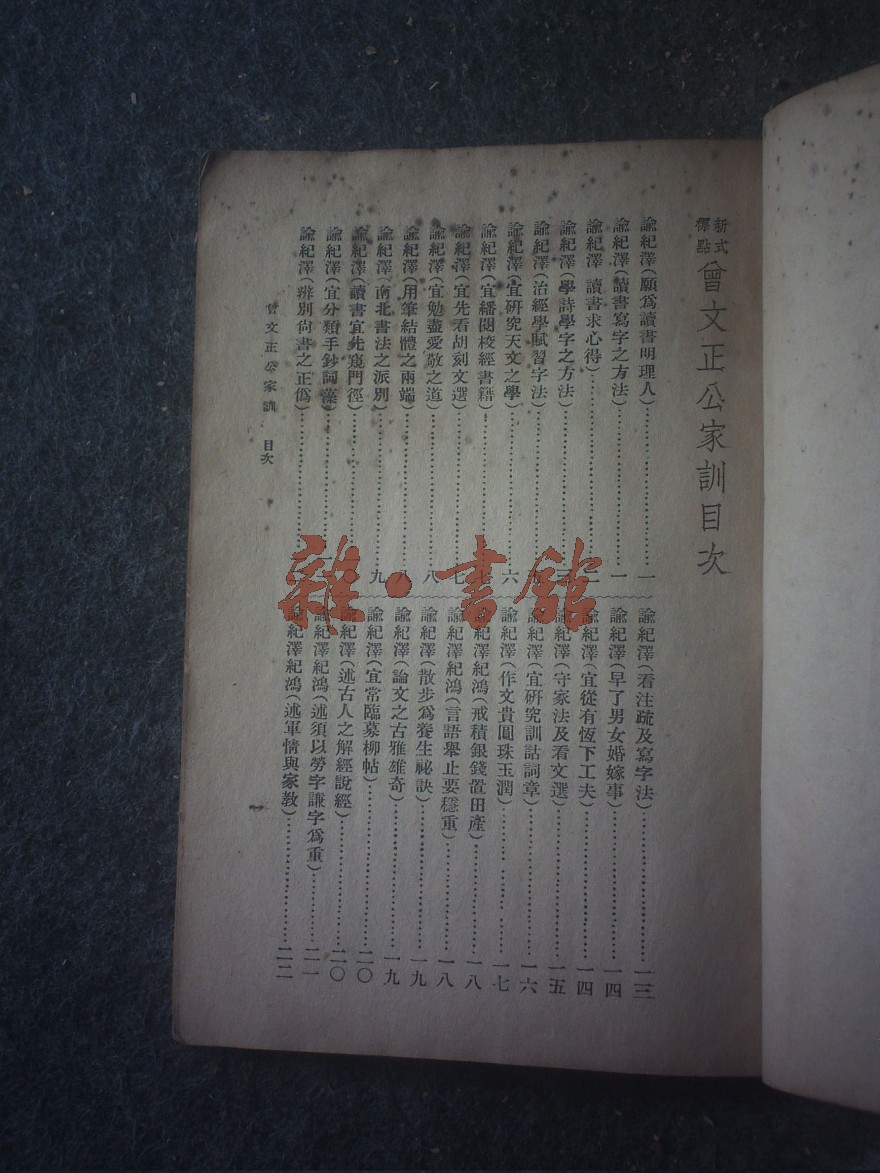 新式標點 曾文正公家訓目次
諭紀澤（願爲讀書明理人）…………一
諭紀澤（讀書寫字之方法）…………一
諭紀澤 讀書求心得）…………二
諭紀澤（學詩學字之方法）…………
諭紀澤（治經學賦習字法）…………
諭紀澤（宜硏究天文之學）…………六
諭紀澤（宜繙閱校經書籍）…………七
諭紀澤（宜先看胡刻文選）…………七
諭紀澤（宜勉盡愛敬之道）…………八
諭紀澤（用筆結體之兩端）…………八
諭紀澤（南北書法之派別）…………九
諭紀澤（讀書宜先窺門徑）…………
諭紀澤（宜分類手鈔詞藻）…………
諭紀澤（辨別尙書之正僞）…………
諭紀澤（看注疏及寫字法）…………一三
諭紀澤（早了男女婚嫁事）…………一四
諭紀澤（宜從有恆下工夫）…………一四
諭紀澤（守家法及看文選）…………一五
諭紀澤（宜硏究訓詁詞章）…………一六
諭紀澤（作文貴圓珠玉潤）…………一七
諭紀澤紀鴻（戒積銀錢置田產）…………一八
諭紀澤紀鴻（言語舉止要穩重）…………一八
諭紀澤（散步爲養生祕訣）…………一九
諭紀澤（論文之古雅雄奇）…………一九
諭紀澤（宜常臨摹柳帖）…………二〇
諭紀澤（述古人之解經說經）…………二〇
諭紀澤紀鴻（述須以勞字謙字爲重）…………二一
諭紀澤紀鴻（述軍情與家教）…………二二
曾文正公家訓 目次
雜·書館